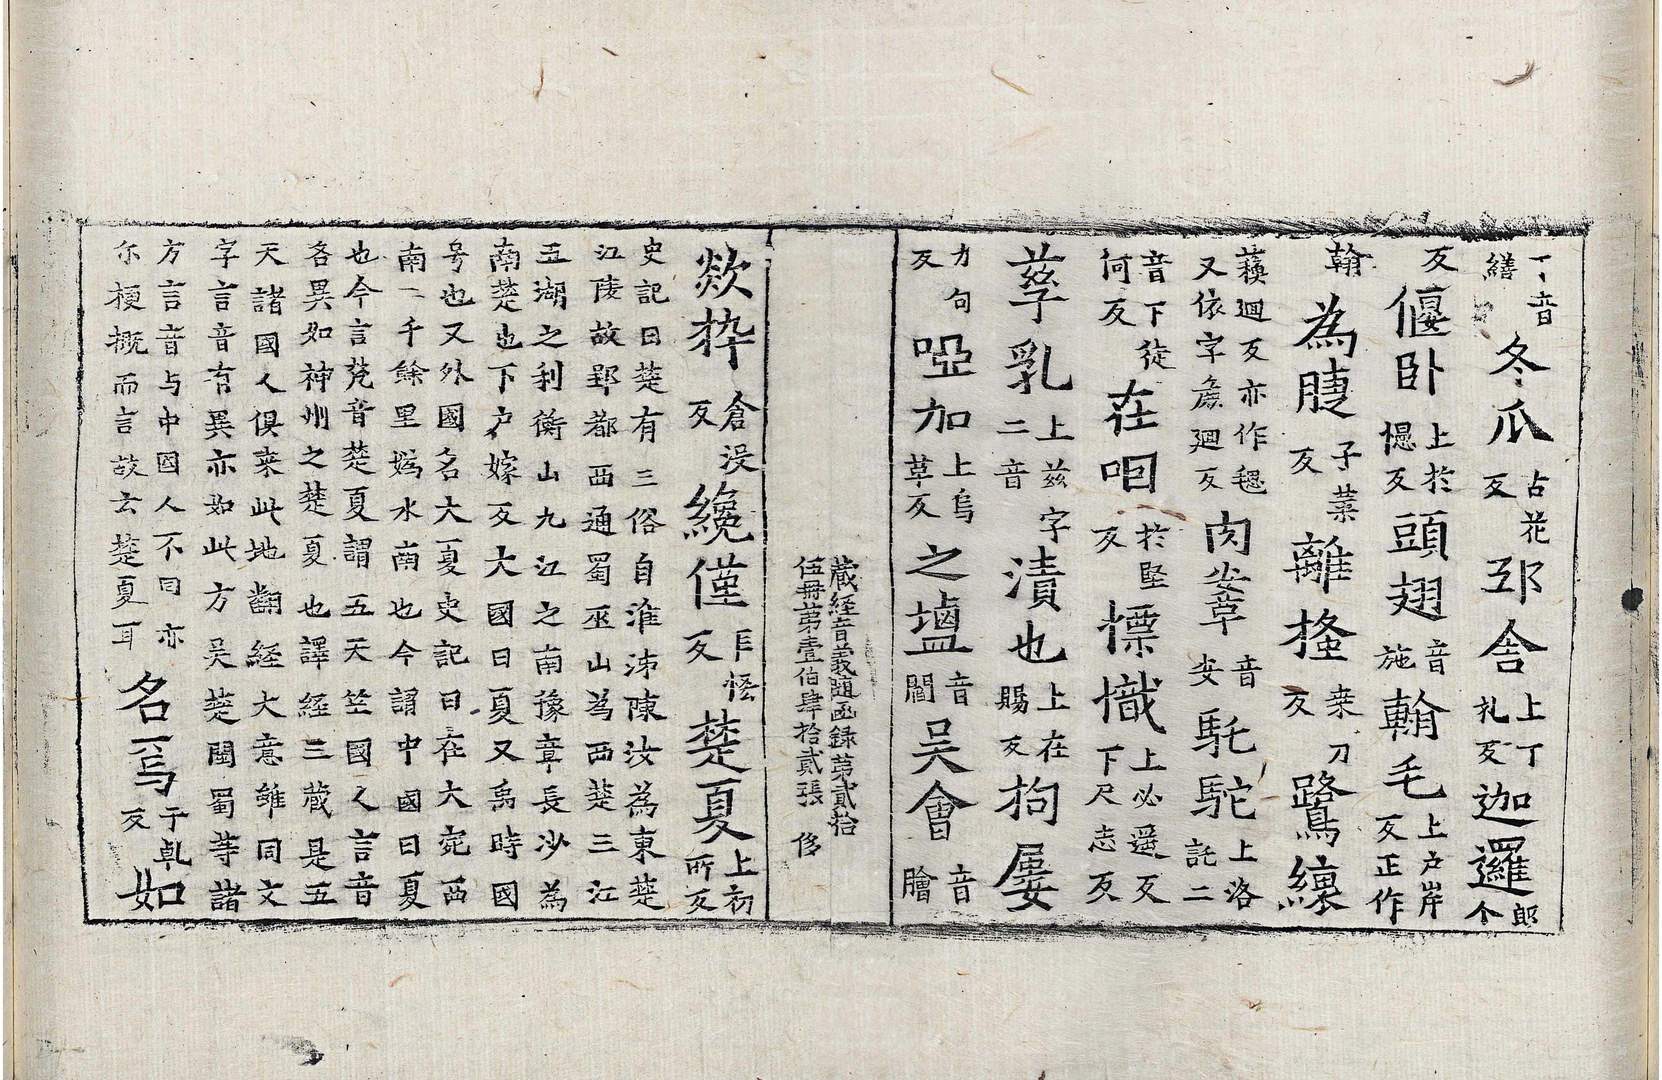 丁丶音繕冬瓜古花反邳舍上丁礼反迦邏郎个
反偃卧上於憶反頭翅音施翰毛上户岸反正作
翰為䏶子葉反離搔桒刀反鷺纕
蘓迴反亦作毸又依字鹿迴反肉䍽音安馲駝上洛託二
音下徒何反在咽於堅反幖幟上必遥反下尺志反
孳乳上兹字二音漬也上在賜反拘屢
力句反啞加上烏革反之壏音閻吳會音膾
蔵経音義随函録苐貳拾
伍冊苐壹伯肆拾貳張 侈
欻捽倉没反纔僅巨恡反楚夏上初所反
史記曰楚有三俗自淮沛陳汝為東楚
江陵故郢都西通蜀巫山為西楚三江
五湖之利衡山九江之南豫章長沙為
南楚也下户嫁反大國曰夏又禹時國
号也又外國名大夏史記曰在大宛西
南二千餘里嬀水南也今謂中國曰夏
也今言梵音楚夏謂五天竺國之言音
各異如神州之楚夏也譯經三蔵是五
天諸國人俱来此地翻經大意雖同文
字言音有異亦如此方吴楚閩蜀等諸
方言音与中國人不同亦
尓梗概而言故云楚夏耳名焉于乹反如